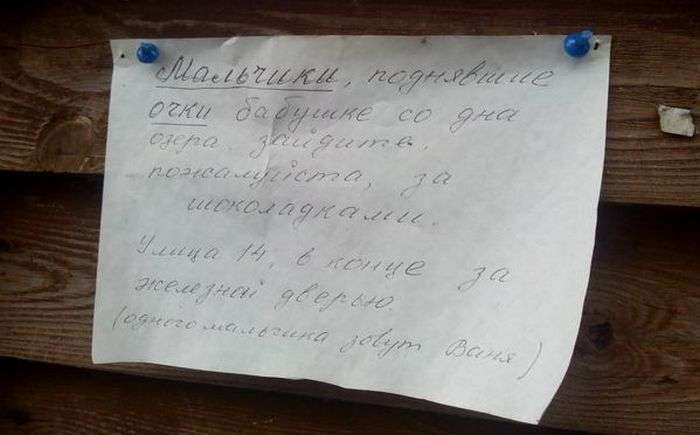 Мальчики, поднявшие
очки бабушке со дна
озера, зайдите,
пожалуйста, за
шоколадками.
Улица 14, в конце за
железной дверью
(одного мальчика зовут Ваня)